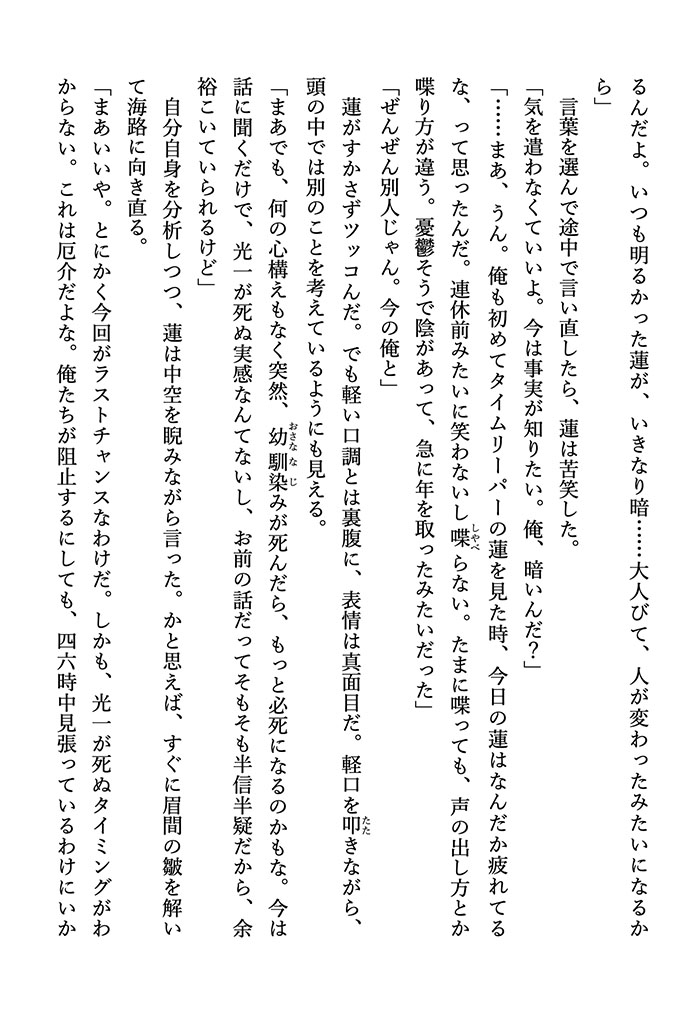 るんだよ。いつも明るかった蓮が、いきなり暗……大人びて、人が変わったみたいになるか
ら」
　言葉を選んで途中で言い直したら、蓮は苦笑した。
「気を遣わなくていいよ。今は事実が知りたい。俺、暗いんだ？」
「……まあ、うん。俺も初めてタイムリーパーの蓮を見た時、今日の蓮はなんだか疲れてる
な、って思ったんだ。連休前みたいに笑わないし喋らない。たまに喋っても、声の出し方とか
しゃべ
喋り方が違う。憂鬱そうで陰があって、急に年を取ったみたいだった」
「ぜんぜん別人じゃん。今の俺と」
　蓮がすかさずツッコんだ。でも軽い口調とは裏腹に、表情は真面目だ。軽口を叩きながら、
たた
頭の中では別のことを考えているようにも見える。
「まあでも、何の心構えもなく突然、幼馴染みが死んだら、もっと必死になるのかもな。今は
おさななじ
話に聞くだけで、光一が死ぬ実感なんてないし、お前の話だってそもそも半信半疑だから、余
裕こいていられるけど」
　自分自身を分析しつつ、蓮は中空を睨みながら言った。かと思えば、すぐに眉間の皺を解い
て海路に向き直る。
「まあいいや。とにかく今回がラストチャンスなわけだ。しかも、光一が死ぬタイミングがわ
からない。これは厄介だよな。俺たちが阻止するにしても、四六時中見張っているわけにいか